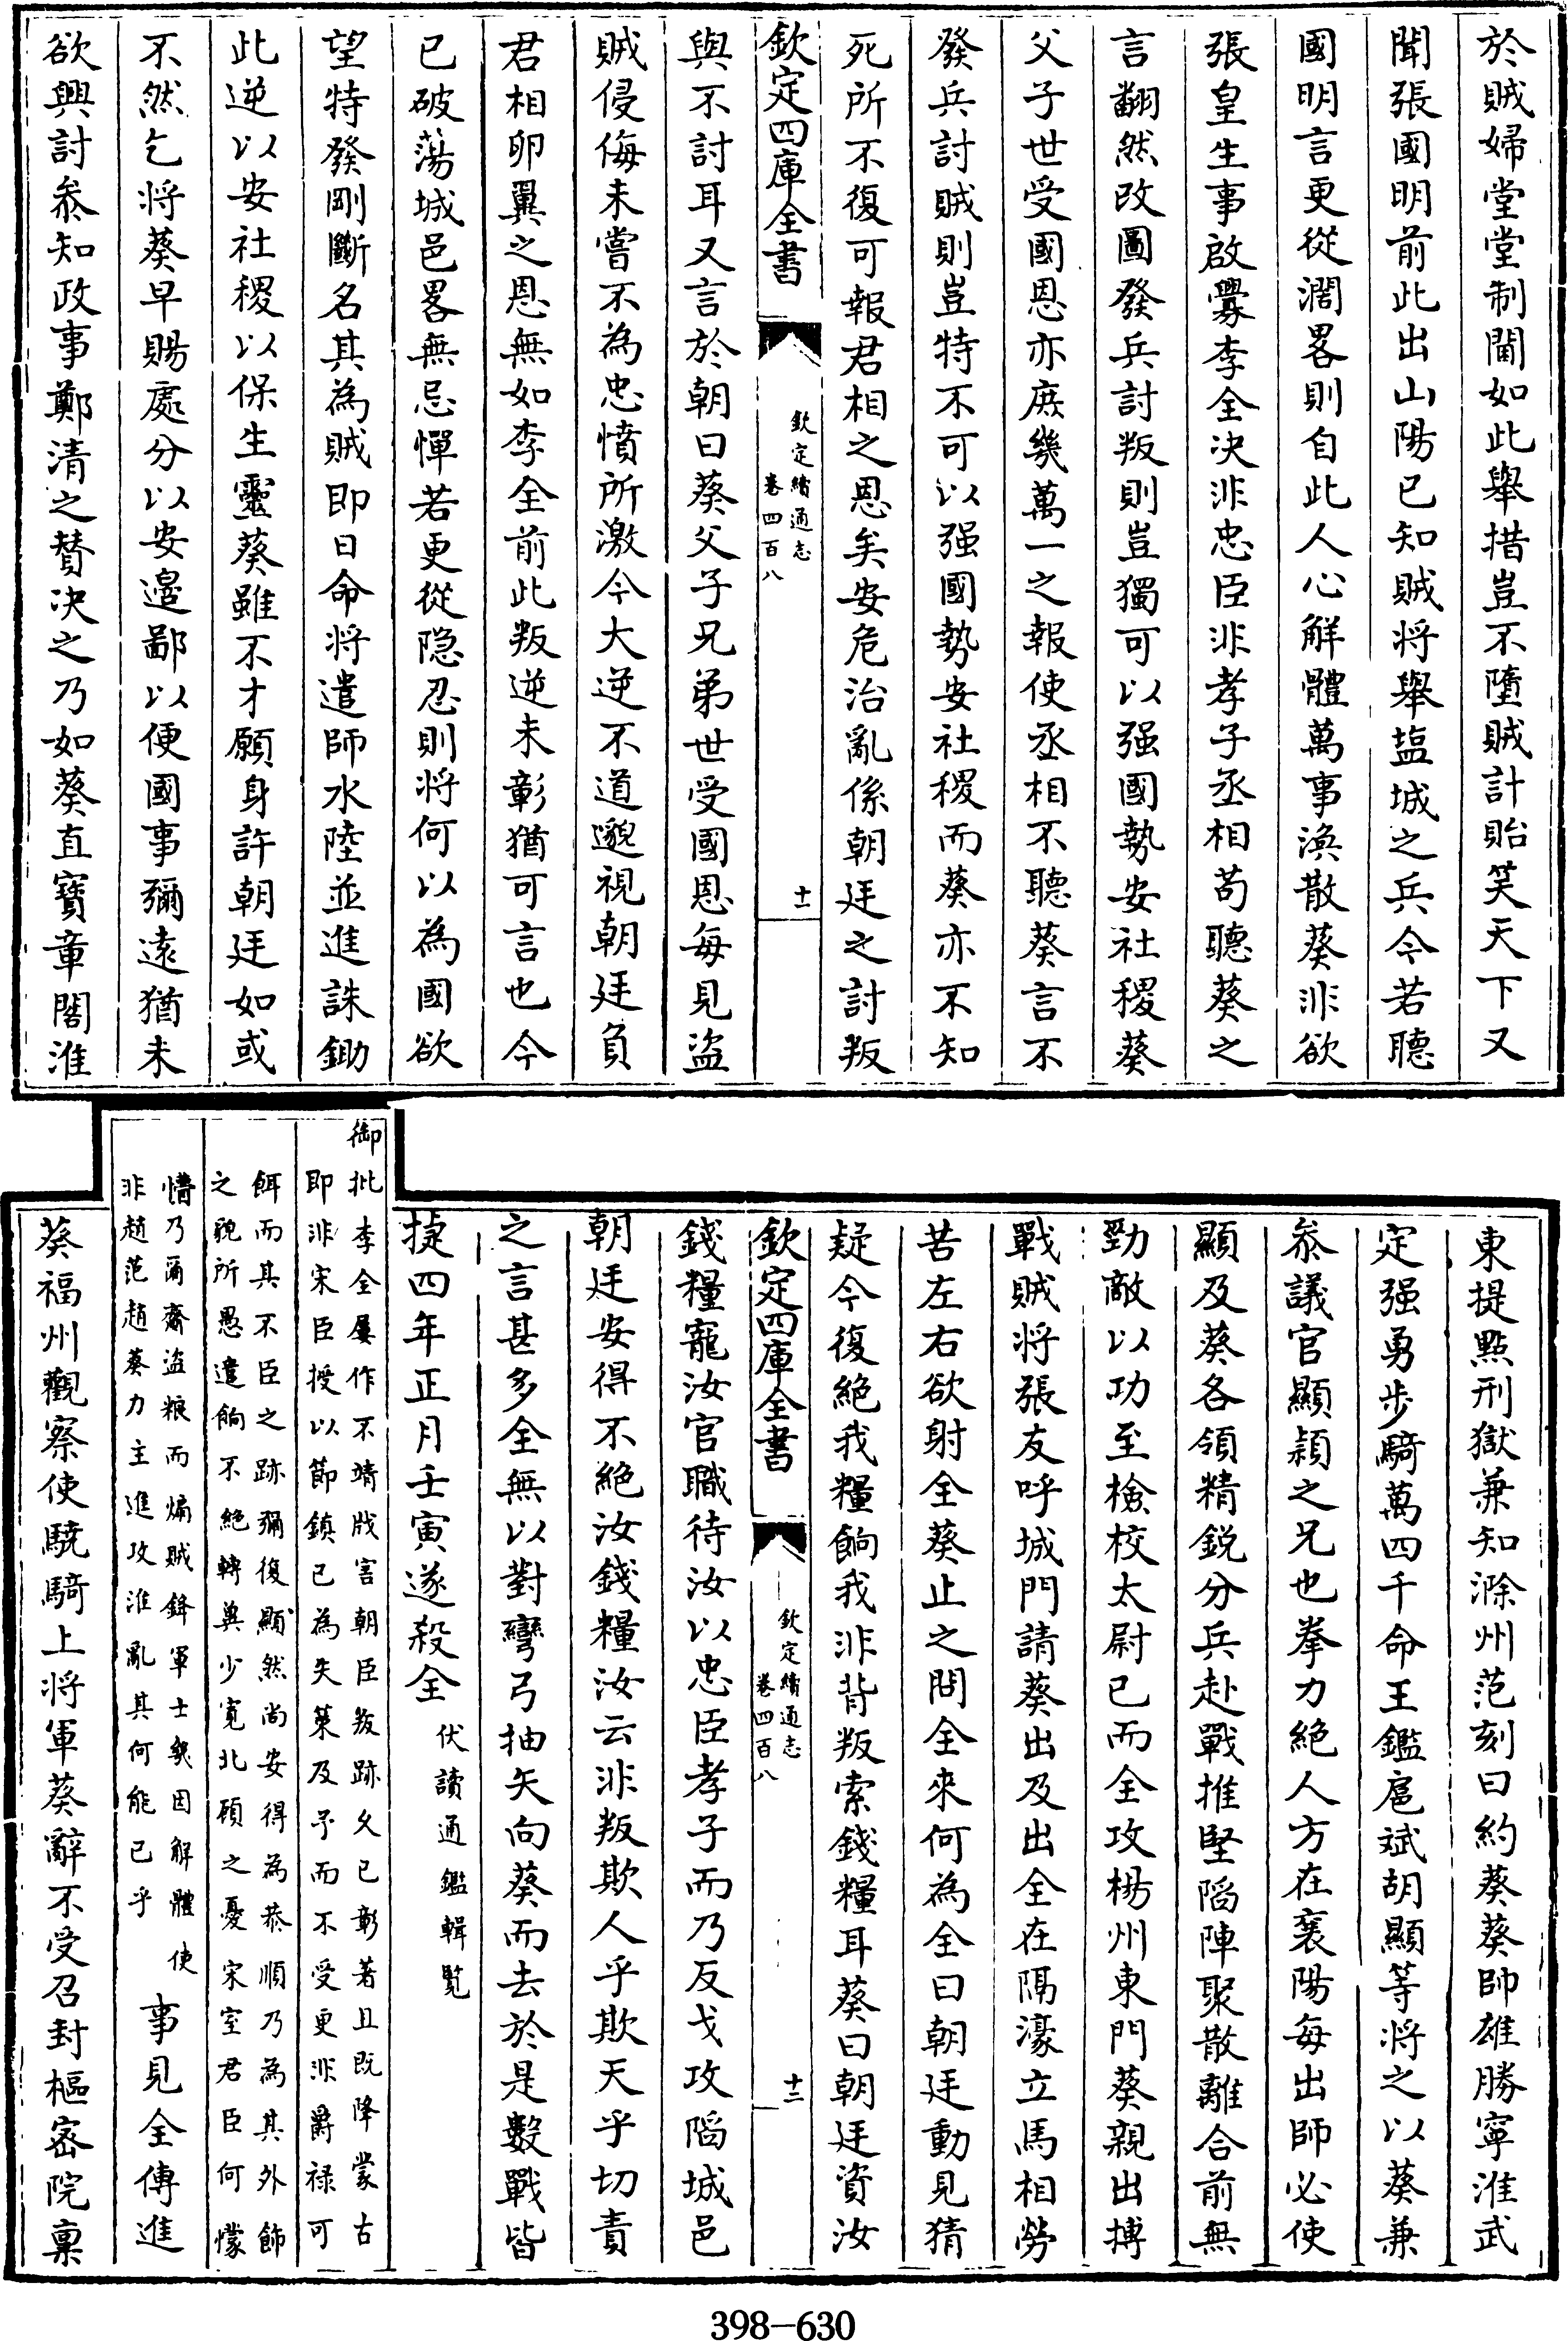 於賊婦堂堂制閫如此舉措豈不墮賊計貽笑天下又
聞張國明前此出山陽已知賊將舉塩城之兵今若聽
國明言更從濶畧則自此人心解體萬事渙散葵非欲
張皇生事啟釁李全決非忠臣非孝子丞相苟聽葵之
言翻然改圖發兵討叛則豈獨可以强國勢安社稷葵
父子世受國恩亦庶幾萬一之報使丞相不聽葵言不
發兵討賊則豈特不可以强國勢安社稷而葵亦不知
死所不復可報君相之恩矣安危治亂係朝廷之討叛
欽定四庫全書
欽定續通志
卷四百八
十一
與不討耳又言於朝曰葵父子兄弟世受國恩每見盜
賊侵侮未嘗不為忠憤所激今大逆不道邈視朝廷負
君相卵翼之恩無如李全前此叛逆未彰猶可言也今
已破蕩城邑畧無忌憚若更從隐忍則將何以為國欲
望特發剛斷名其為賊即日命將遣師水陸並進誅鋤
此逆以安社稷以保生靈葵雖不才願身許朝廷如或
不然乞將葵早賜處分以安邉鄙以便國事彌遠猶未
欲興討叅知政事鄭清之賛决之乃如葵直寳章閣淮
東提㸃刑獄兼知滁州范刻日約葵葵帥雄勝寧淮武
定强勇步騎萬四千命王鑑扈斌胡顯等將之以葵兼
叅議官顯穎之兄也拳力絶人方在襄陽每出師必使
顯及葵各領精鋭分兵赴戰推堅陷陣聚散離合前無
勁敵以功至檢校太尉已而全攻楊州東門葵親出搏
戰賊將張友呼城門請葵出及出全在隔濠立馬相勞
苦左右欲射全葵止之問全來何為全曰朝廷動見猜
疑今復絶我糧餉我非背叛索錢糧耳葵曰朝廷資汝
欽定四庫全書
欽定續通志
卷四百八
十二
錢糧寵汝官職待汝以忠臣孝子而乃反戈攻陷城邑
朝廷安得不絶汝錢糧汝云非叛欺人乎欺天乎切責
之言甚多全無以對彎弓抽矢向葵而去於是數戰皆
捷四年正月壬寅遂殺全伏讀通鑑輯覧
御批李全屢作不靖戕害朝臣叛跡久已彰著且既降蒙古
即非宋臣授以節鎮已為失策及予而不受更非爵祿可
餌而其不臣之跡彌復顯然尚安得為恭順乃為其外飾
之貌所愚遣餉不絶轉冀少寛北顧之憂宋室君臣何懞
懵乃爾齎盜粮而煽賊鋒軍士幾因解體使
非趙范趙葵力主進攻淮亂其何能已乎
事見全傳進
葵福州觀察使驍騎上將軍葵辭不受召封樞密院禀
398-630